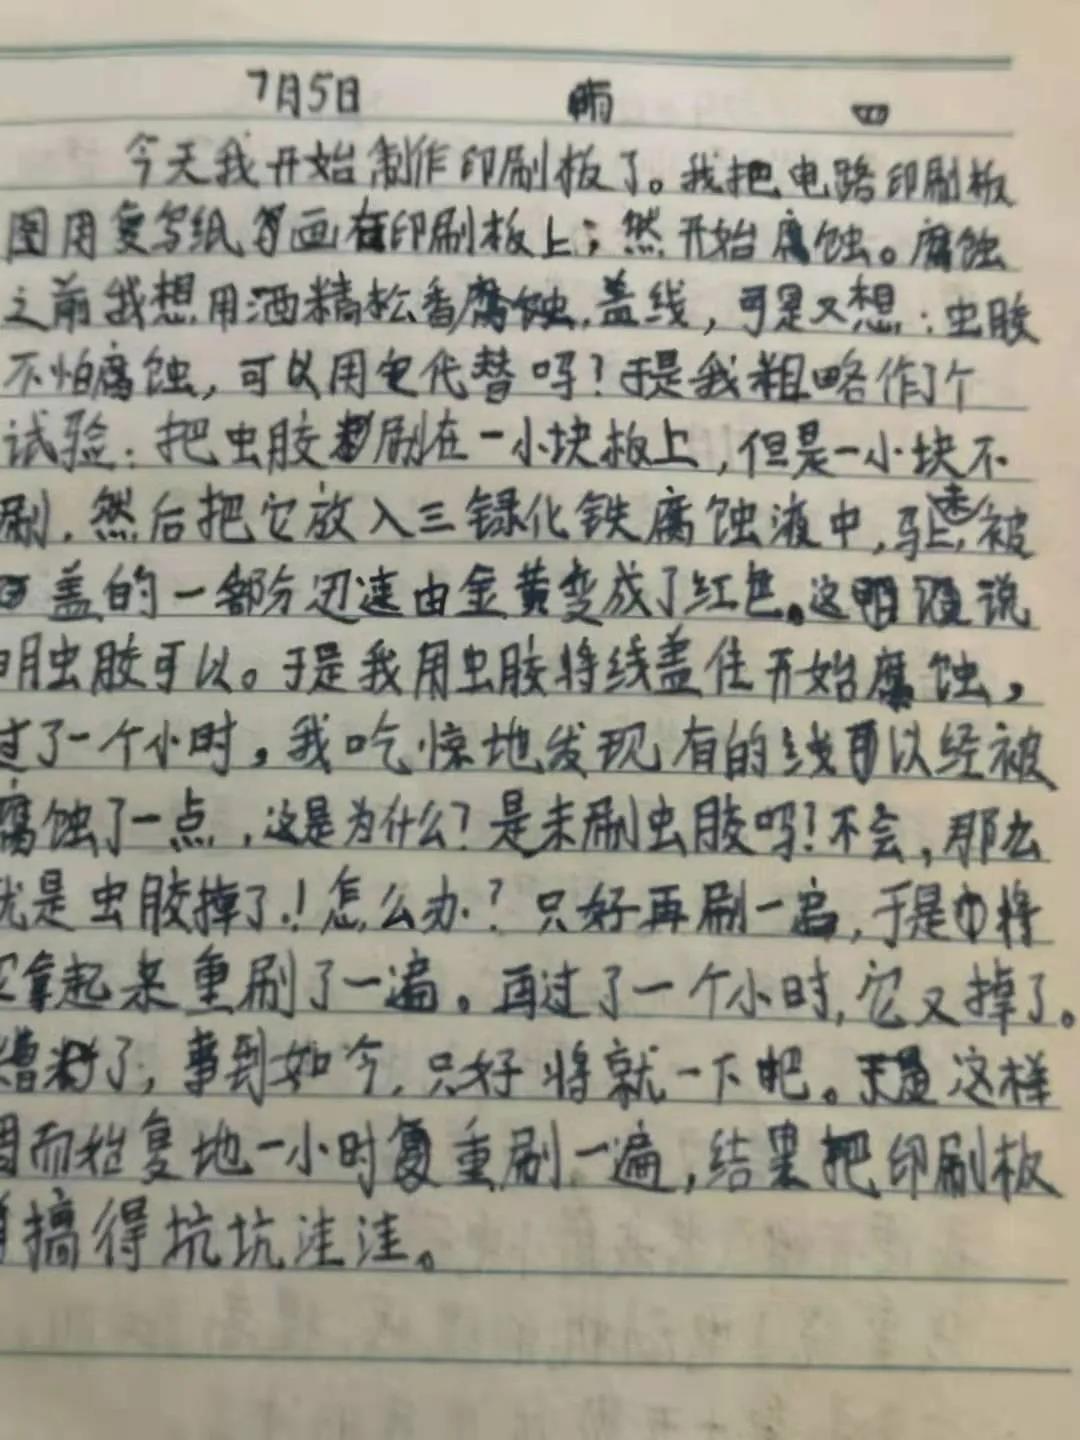 7月5日 晴 四
今天我开始制作印刷板了。我把电路印刷板
图用复写纸写画在印刷板上;然开始腐蚀。腐蚀
之前我想用酒精松香腐蚀盖线,可是又想:虫胶
不怕腐蚀,可以用它代替吗?于是我粗略作了个
试验:把虫胶刷在一小块板上,但是一小块不
刷,然后把它放入三绿化铁腐蚀液中,马上被
盖的一部分迅速由金黄变成了红色。这说
明虫胶可以。于是我用虫胶将线盖住开始腐蚀,
过了一个小时,我吃惊地发现有的线可以经被
腐蚀了一点,这是为什么?是未刷虫胶吗?不会,那么
就是虫胶掉了!怎么办?只好再刷一遍,于是将
拿起来重刷了一遍。再过了一个小时,它又掉了。
糟糕了,事到如今,只好将就一下吧。于是这样
周而始复地一小时重刷一遍,结果把印刷板
搞得坑坑洼洼。